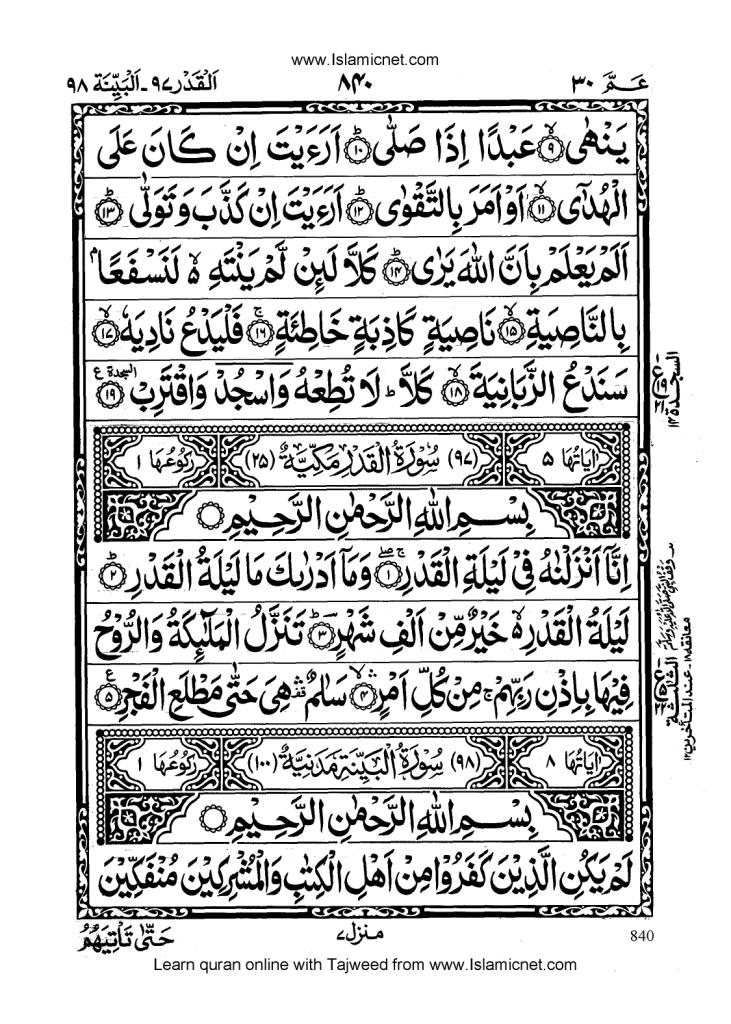 www.Islamicnet.com
عـمّ ٣٠
٨۴٠
اَلْقَدْر ٩٧-اَلْبَيِّنَة ٩٨
يَنْهٰى ۙ۹ عَبْدًا اِذَا صَلّٰى ؕ۱۰ اَرَءَيْتَ اِنْ كَانَ عَلَى
الْهُدٰٓى ۙ۱۱ اَوْ اَمَرَ بِالتَّقْوٰى ؕ۱۲ اَرَءَيْتَ اِنْ كَذَّبَ وَتَوَلّٰى ؕ۱۳
اَلَمْ يَعْلَمْ بِاَنَّ اللّٰهَ يَرٰى ؕ۱۴ كَلَّا لَئِنْ لَّمْ يَنْتَهِ ۬ۙ لَنَسْفَعًاۢ
بِالنَّاصِيَةِ ۙ۱۵ نَاصِيَةٍ كَاذِبَةٍ خَاطِئَةٍ ۚ۱۶ فَلْيَدْعُ نَادِيَهٗ ۙ۱۷
سَنَدْعُ الزَّبَانِيَةَ ۙ۱۸ كَلَّا ؕ لَا تُطِعْهُ وَاسْجُدْ وَاقْتَرِبْ ۱۹ السجدة ع
السجدة ١٤
ع
اٰيَاتُهَا ۵
(٩٧) سُوْرَةُ الْقَدْرِ مَكِّيَّةٌ (٢۵)
رُكُوْعُهَا ١
بِسْمِ اللّٰهِ الرَّحْمٰنِ الرَّحِيْمِ
اِنَّاۤ اَنْزَلْنٰهُ فِيْ لَيْلَةِ الْقَدْرِ ۚۖ۱ وَمَاۤ اَدْرٰىكَ مَا لَيْلَةُ الْقَدْرِ ؕ۲
لَيْلَةُ الْقَدْرِ ۬ۙ خَيْرٌ مِّنْ اَلْفِ شَهْرٍ ؕ۳ تَنَزَّلُ الْمَلٰٓئِكَةُ وَالرُّوْحُ
فِيْهَا بِاِذْنِ رَبِّهِمْ ۚ مِنْ كُلِّ اَمْرٍ ۙۛ۴ سَلٰمٌ ۛ هِيَ حَتّٰى مَطْلَعِ الْفَجْرِ ۵ ع
الثلثة
معانقه ١٨ عند المتاخرين ١٢
اٰيَاتُهَا ٨
(٩٨) سُوْرَةُ الْبَيِّنَةِ مَدَنِيَّةٌ (١٠٠)
رُكُوْعُهَا ١
بِسْمِ اللّٰهِ الرَّحْمٰنِ الرَّحِيْمِ
لَمْ يَكُنِ الَّذِيْنَ كَفَرُوْا مِنْ اَهْلِ الْكِتٰبِ وَالْمُشْرِكِيْنَ مُنْفَكِّيْنَ
حَتّٰى تَاْتِيَهُمُ
منزل ٧
840
Learn quran online with Tajweed from www.Islamicnet.com